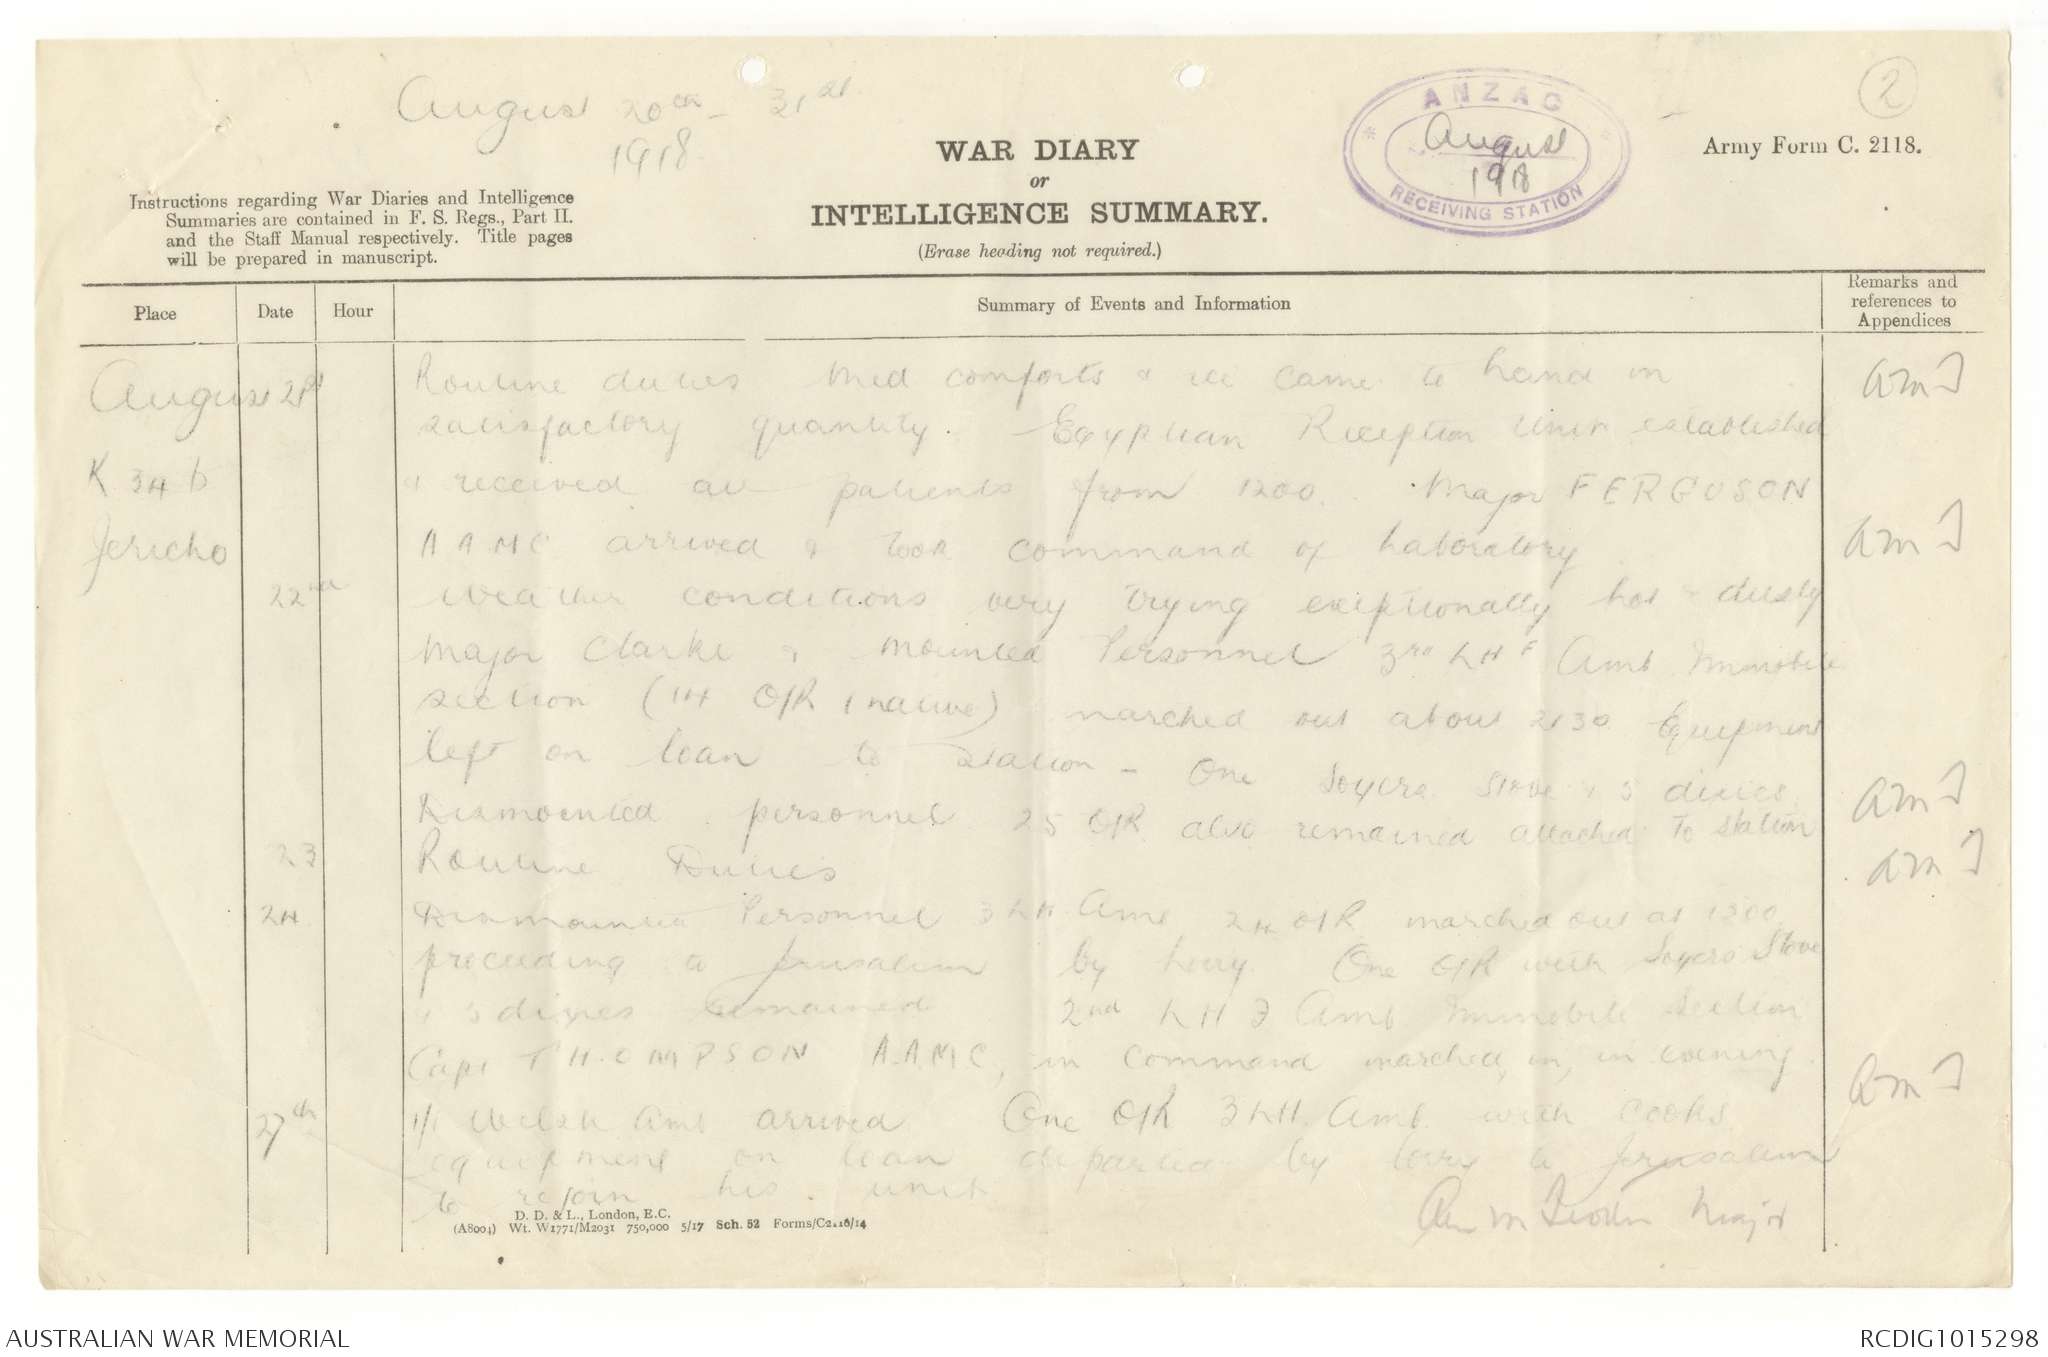 August 20th - 31st
1918
ANZAC
August
1918
RECEIVING STATION
2
WAR DIARY
or
INTELLIGENCE SUMMARY.
(Erase heading not required.)
Army Form C. 2118.
Instructions regarding War Diaries and Intelligence
Summaries are contained in F. S. Regs., Part II.
and the Staff Manual respectively. Title pages
will be prepared in manuscript.
Place Date Hour Summary of Events and Information Remarks and references to Appendices
August 21st Routine duties Med comforts & ice came to hand in
satisfactory quantity. Egyptian Reception Unit established
K 34 b & received all patients from 1200. Major FERGUSON
Jericho AAMC arrived & took command of Laboratory
22nd Weather conditions very trying exceptionally hot & dusty
Major Clarke & mounted Personnel 3rd LHF Amb Immobile
section (14 O/R 1 native) marched out about 2130 Equipment
left on loan to station - One Soyers Stove & 5 dixies.
Dismounted personnel 25 O/R also remained attached to station
23 Routine Duties
24 Dismounted Personnel 3 LH. Amb 24 O/R marched out at 1300
proceeding to Jerusalem by lorry. One O/R with Soyers Stove
& 5 dixies remained 2nd LHF Amb Immobile Section
Capt THOMPSON A.A.M.C, in command marched, in, in evening.
27th 1/1 Welsh Amb arrived One O/R 3 LH. Amb. with cooks
equipment on loan departed by lorry to Jerusalem
to rejoin his unit
Major
D. D. & L., London, E.C.
(A8004) Wt. W1771/M2031 750,000 5/17 Sch. 52 Forms/C2118/14
AUSTRALIAN WAR MEMORIAL
RCDIG1015298